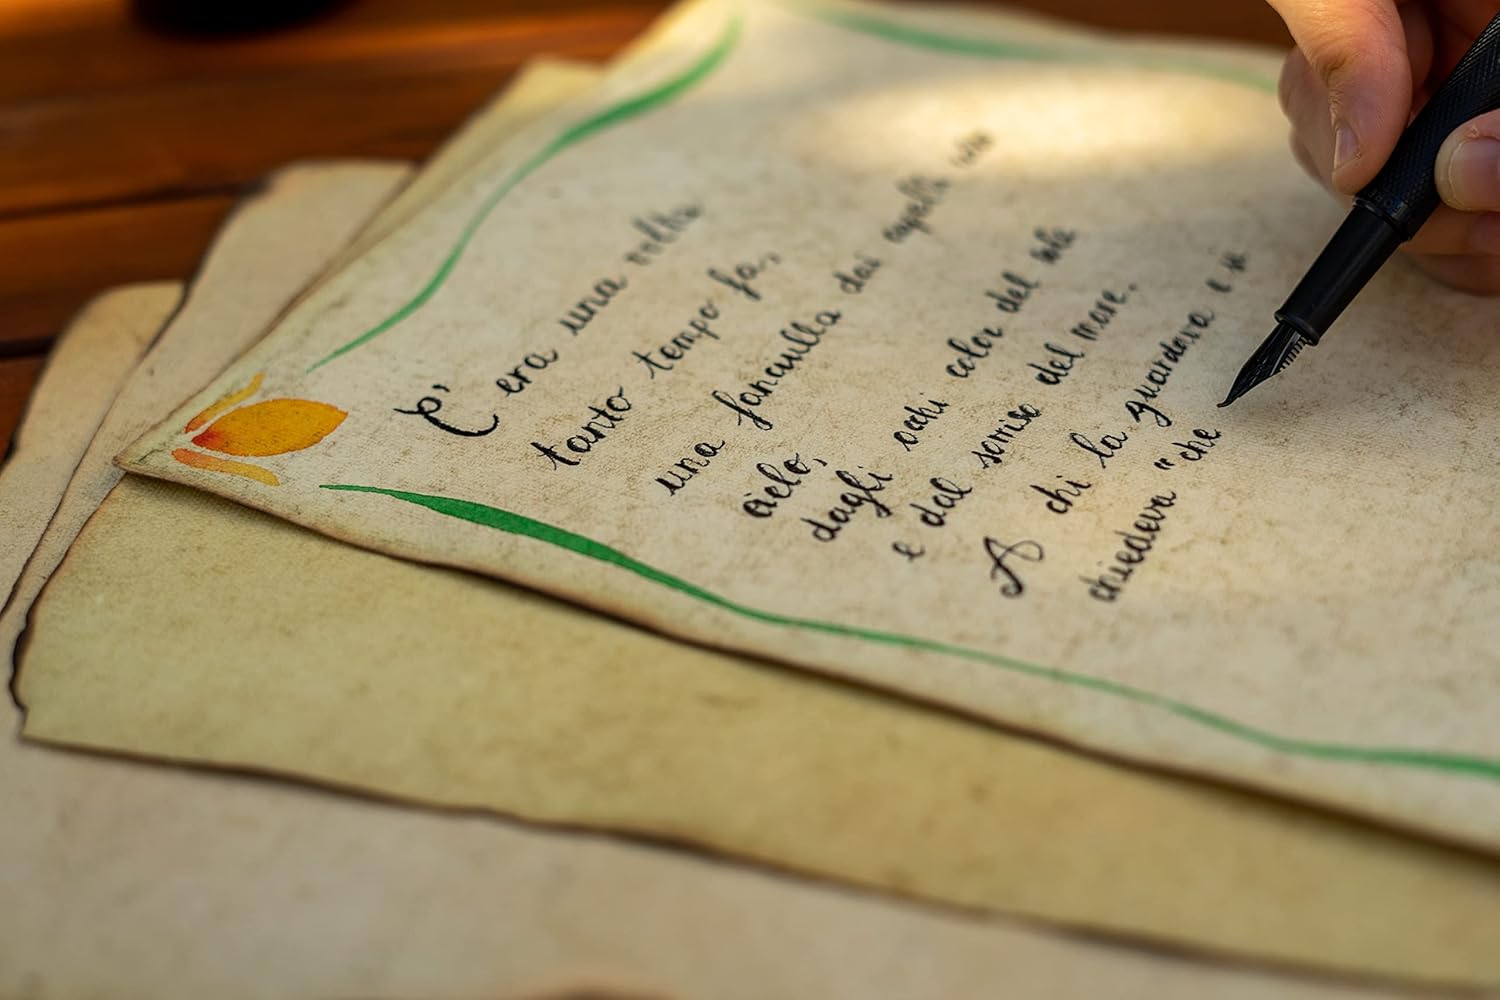 C'era una volta
tanto tempo fa,
una fanciulla dai capelli
cielo,
dagli occhi color del
e dal sorriso del mare.
A chi la guardava e si
chiedeva "che